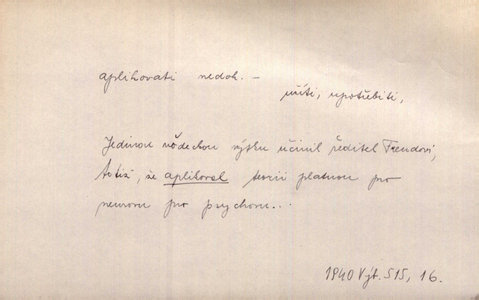 aplikovati nedok. –
užíti, upotřebiti,
Jedinou vědeckou výtku učinil ředitel Freudovi,
totiž, že aplikoval teorii platnou pro
neurosu pro psychosu...
1940 Výt. S15, 16.